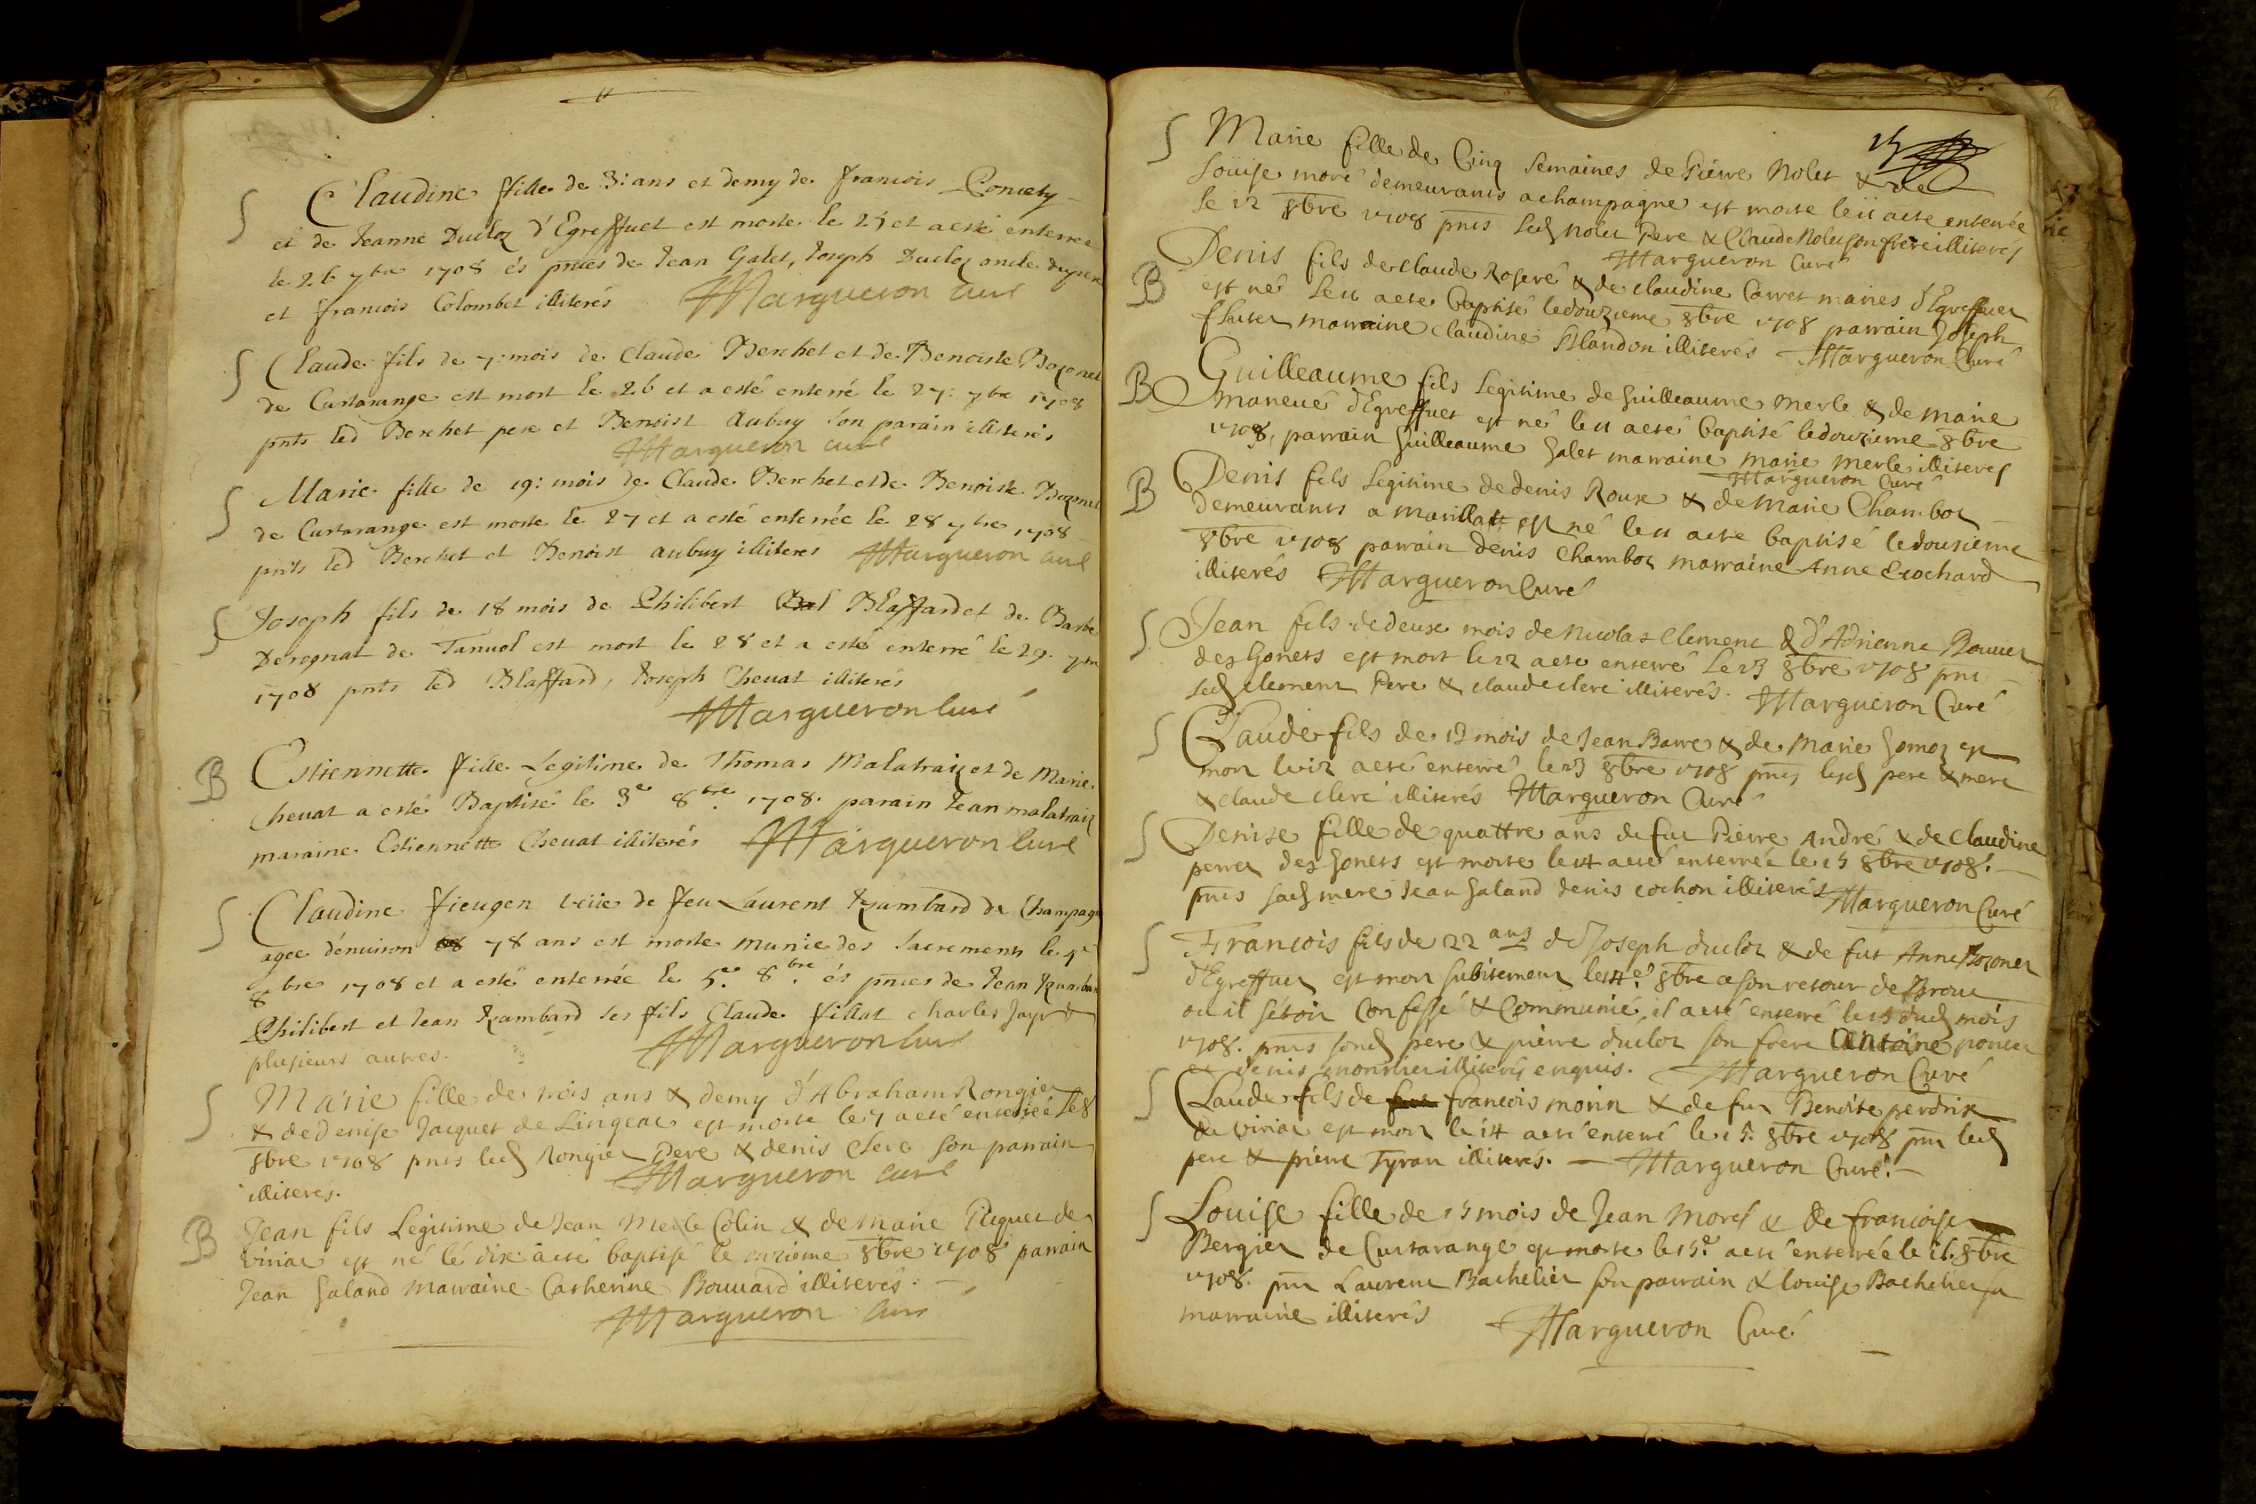 S Claudine fille de 3: ans et demy de francois
et de Jeanne Ducloz d'Egreffuet est morte le 25 et a esté enterrée
le 26 7bre 1708 és pnces de Jean Galet, Joseph Ducloz oncle
et francois Colombet illiterés Margueron curé
S Claude fils de 7: mois de Claude Berchet et de Benoiste Bozonet
de Curtarange est mort le 26 et a esté enterré le 27: 7bre 1708
pnts led Berchet pere et Benoist Aubuy son parain illiterés
Margueron curé
S Marie fille de 19: mois de Claude Berchet et de Benoiste Bozonet
de Curtarange est morte le 27 et a esté enterrée le 28 7bre 1708
pnts led Berchet et Benoist aubuy illiteres Margueron curé
S Joseph fils de 18 mois de Philibert Blaffard et de Barbe
Derognat de Tanuol est mort le 28 et a esté enterré le 29. 7bre
1708 pnts led Blaffard, Joseph Cheuat illiterés
Margueron Curé
B Estiennette fille Legitime de Thomas Malatraiz et de Marie
Cheuat a esté Baptisé le 3e 8bre 1708. parain Jean malatraiz
maraine Estiennette Cheuat illiterés Margueron Curé
S Claudine fieugen veüe de feu Laurent Rambard de Champagne
agée dénuiron 78 ans est morte munie des Sacrements le 4e
8bre 1708 et a esté enterrée le 5e. 8bre. és pnces de Jean
Philibert et Jean Rambard ses fils Claude fillat charles Jayr et
plusieurs autres. Margueron curé
S Marie fille de trois ans & demy d'Abraham Rongier
& de denise Jacquet de Lingeat est morte le 7 a eté enterrée le 8
8bre 1708 pnts led Rongier Pere & denis Clerc son parrain
illiterés. Margueron curé
B Jean fils Legitime de Jean Merle Colin & de Marie Piquet de
viriat est né le dix a eté baptisé le onzieme 8bre 1708 parrain
Jean Galand Marraine Catherine Bouuard illiterés.
Margueron Curé
S Marie fille de Cinq Semaines de Pierre Nolet & de
Louise moré demeurants a champagne est morte le 11 a eté enterrée
le 12 8bre 1708 pnts led Nolet Pere & Claude Nolet son frere illiterés
Margueron Curé
B Denis fils de Claude Roseré & de Claudine Carret mariés d'Egreffuet
est né le 11 a eté Baptisé le douzieme 8bre 1708 parrain Joseph
marraine Claudine Blandon illiterés Margueron Curé
B Guilleaume fils Legitime de Guilleaume Merle & de Marie
maneué d'Egreffuet est né le 11 a eté baptisé le douzieme 8bre
1708, parrain Guilleaume Galet marraine marie merle illiterés
Margueron Curé
B Denis fils Legitime de denis Roux & de Marie Chambot
demeurants a Marillat est né le 11 a eté baptisé le douzieme
8bre 1708 parrain denis Chambot marraine Anne Crochard
illiterés Margueron Curé
S Jean fils de deux mois de Nicolas Clement & d'Adrienne Bouuet
des Gonets est mort le 12 a eté enterré le 13 8bre 1708 pnts
led clement Pere & claude clerc illiterés. Margueron Curé
S Claude fils de 13 mois de Jean Barre & de Marie Gomoz est
mort le 12 a eté enterré le 13 8bre 1708 pnts lesd pere & mere
& claude clerc illiterés Margueron Curé
S Denise fille de quattre ans de fut Pierre André & de Claudine
perret des Gonets est morte le 14 a eté enterrée le 15 8bre 1708.
pnts sad mere Jean Galand denis cochon illiterés Margueron Curé
S Francois fils de 22 ans de Joseph ducloz & de fut Anne Bozonet
d'Egreffuet est mort subitement le 14e. 8bre a son retour de Brou
ou il s'étoit Confessé & Communié, il a eté enterré le 15 dud mois
1708. pnts sond pere & pierre ducloz son frere Antoine poncet
et denis monnier illiterés enquis. Margueron Curé
S Claude fils de francois morin & de fut Benoite perdrix
de viriat est mort le 14 a eté enterré le 15. 8bre 1708 pnt led
pere & pierre Tyran illiterés. Margueron Curé.
S Louise fille de 15 mois de Jean Morel & de francoise
Bergier de Curtarange est morte le 15e. a eté enterrée le 16. 8bre
1708. pnt Laurent Bachelier son parrain & louise Bachelier sa
marraine illiterés Margueron Curé